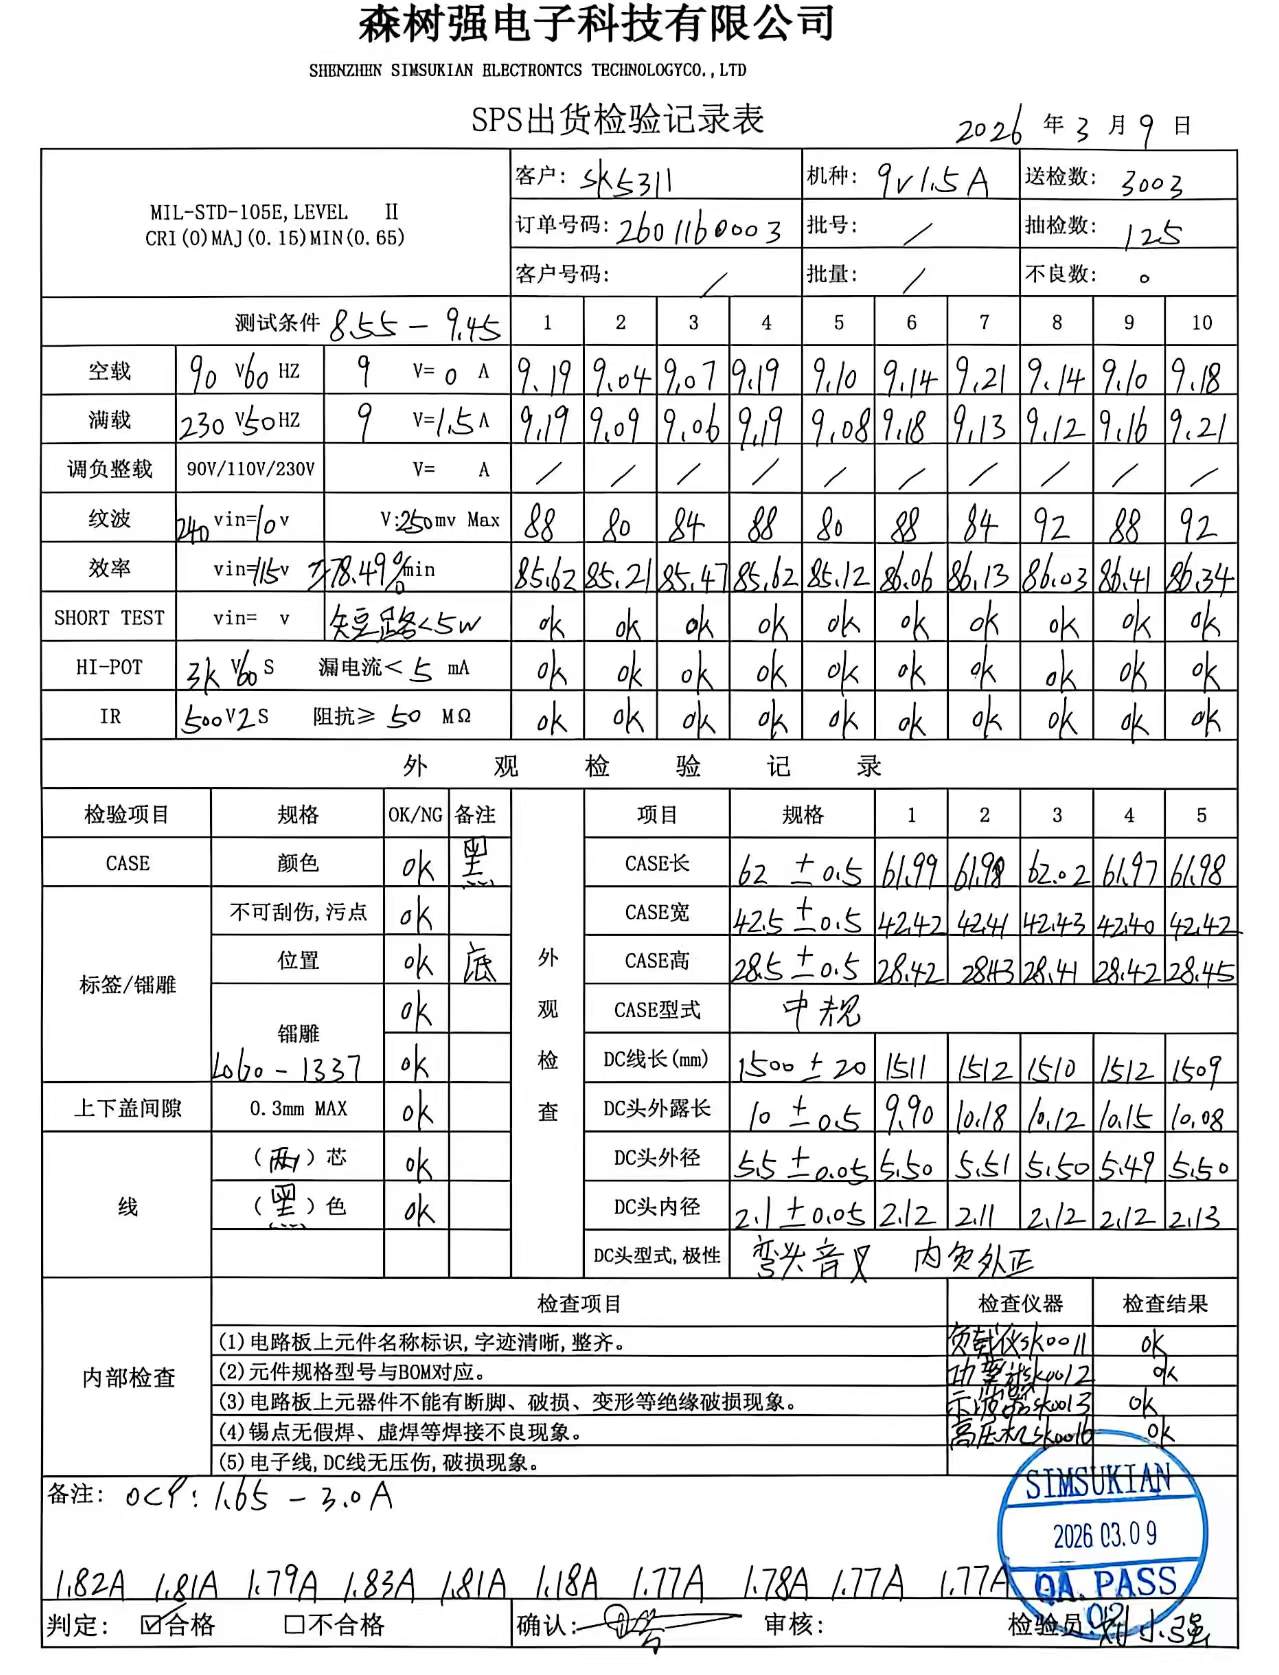 森树强电子科技有限公司
SHENZHEN SIMSUKIAN ELECTRONTCS TECHNOLOGYCO.,LTD
SPS出货检验记录表
2026 年 3 月 9 日
MIL-STD-105E,LEVEL Ⅱ
CRI(0)MAJ(0.15)MIN(0.65)
客户: SK5311 机种: 9V1.5A 送检数: 3003
订单号码: 2601160003 批号: / 抽检数: 125
客户号码: / 批量: / 不良数: 0
测试条件 8.55 - 9.45 1 2 3 4 5 6 7 8 9 10
空载 90 V 60 HZ 9 V= 0 A 9.19 9.04 9.07 9.19 9.10 9.14 9.21 9.14 9.10 9.18
满载 230 V 50 HZ 9 V= 1.5 A 9.19 9.09 9.06 9.19 9.08 9.18 9.13 9.12 9.16 9.21
调负整载 90V/110V/230V V= A / / / / / / / / / /
纹波 240 vin=10v V:250mv Max 88 80 84 88 80 88 84 92 88 92
效率 vin=115v ≥78.49% min 85.62 85.21 85.47 85.62 85.12 86.06 86.13 86.03 86.41 86.34
SHORT TEST vin= v 短路<5W ok ok ok ok ok ok ok ok ok ok
HI-POT 3K V 60 S 漏电流< 5 mA ok ok ok ok ok ok ok ok ok ok
IR 500 V 2 S 阻抗≥ 50 MΩ ok ok ok ok ok ok ok ok ok ok
外观检验记录
检验项目 规格 OK/NG 备注 项目 规格 1 2 3 4 5
CASE 颜色 ok 黑 CASE长 62 ±0.5 61.99 61.98 62.02 61.97 61.98
不可刮伤,污点 ok CASE宽 42.5 ±0.5 42.42 42.41 42.43 42.40 42.42
标签/镭雕 位置 ok 底 外观检查 CASE高 28.5 ±0.5 28.42 28.43 28.41 28.42 28.45
镭雕 ok CASE型式 中规
Logo - 1337 ok DC线长(mm) 1500 ± 20 1511 1512 1510 1512 1509
上下盖间隙 0.3mm MAX ok DC头外露长 10 ±0.5 9.90 10.18 10.12 10.15 10.08
线 (两)芯 ok DC头外径 5.5 ±0.05 5.50 5.51 5.50 5.49 5.50
(黑)色 ok DC头内径 2.1 ±0.05 2.12 2.11 2.12 2.12 2.13
DC头型式,极性 弯头音叉 内负外正
内部检查 检查项目 检查仪器 检查结果
(1)电路板上元件名称标识,字迹清晰,整齐。 负载仪SK0011 ok
(2)元件规格型号与BOM对应。 功率计SK0012 ok
(3)电路板上元器件不能有断脚、破损、变形等绝缘破损现象。 示波器SK0013 ok
(4)锡点无假焊、虚焊等焊接不良现象。 高压机SK0016 ok
(5)电子线,DC线无压伤,破损现象。
备注: OCP: 1.65 - 3.0A
SIMSUKIAN
2026 03.09
QA. PASS
1.82A 1.81A 1.79A 1.83A 1.81A 1.18A 1.77A 1.78A 1.77A 1.77A
判定: ☑合格 □不合格 确认: 审核: 检验员: 小强